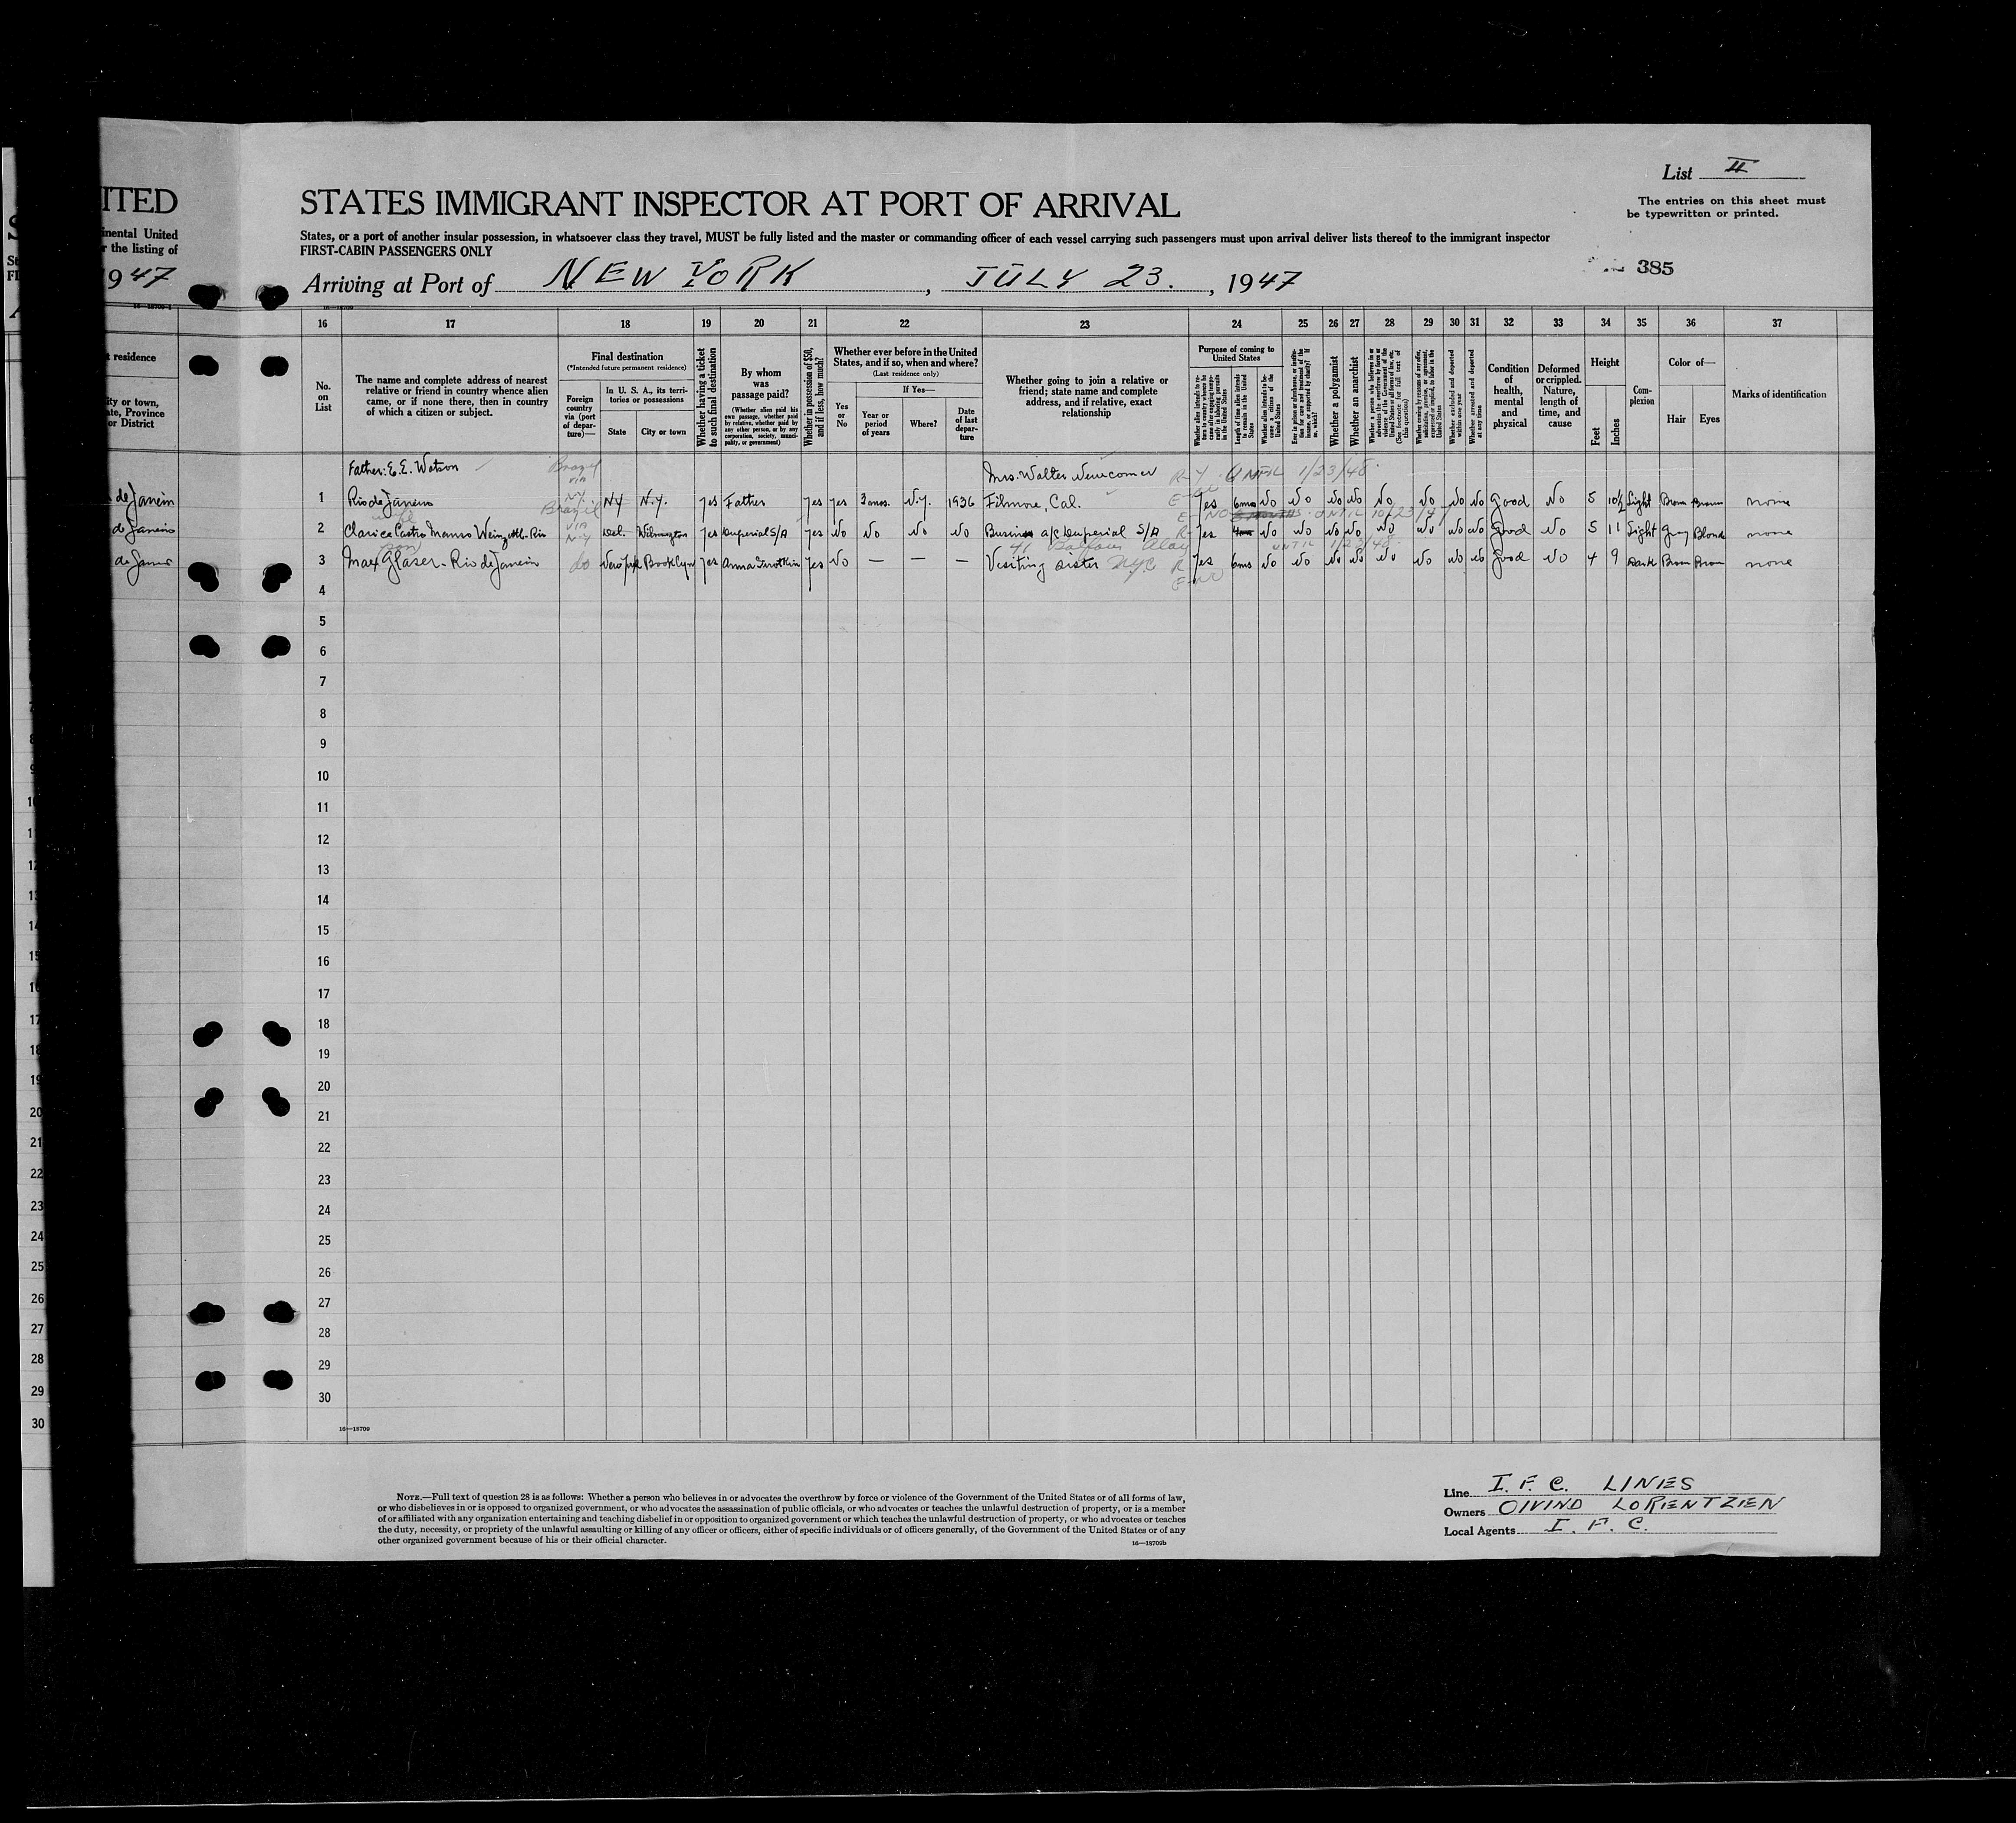 List II
The entries on this sheet must
be typewritten or printed.
ITED
STATES IMMIGRANT INSPECTOR AT PORT OF ARRIVAL
inental United
r the listing of
States, or a port of another insular possession, in whatsoever class they travel, MUST be fully listed and the master or commanding officer of each vessel carrying such passengers must upon arrival deliver lists thereof to the immigrant inspector
FIRST-CABIN PASSENGERS ONLY
385
1947
Arriving at Port of NEW YORK, JULY 23., 1947
16 17 18 19 20 21 22 23 24 25 26 27 28 29 30 31 32 33 34 35 36 37
residence
ity or town,
ate, Province
or District
No.
on
List
The name and complete address of nearest
relative or friend in country whence alien
came, or if none there, then in country
of which a citizen or subject.
Final destination
(*Intended future permanent residence)
Foreign
country
via (port
of depar-
ture)—
In U. S. A., its terri-
tories or possessions
State
City or town
Whether having a ticket
to such final destination
By whom
was
passage paid?
(Whether alien paid his
own passage, whether paid
by relative, whether paid by
any other person, or by any
corporation, society, munici-
pality, or government)
Whether in possession of $50,
and if less, how much?
Whether ever before in the United
States, and if so, when and where?
(Last residence only)
Yes
or
No
If Yes—
Year or
period
of years
Where?
Date
of last
depar-
ture
Whether going to join a relative or
friend; state name and complete
address, and if relative, exact
relationship
Purpose of coming to
United States
Length of time alien intends
to remain in the United
States
Whether alien intends to be-
come a citizen of the
United States
Whether a polygamist
Whether an anarchist
Whether excluded and deported
within one year
Whether arrested and deported
at any time
Condition
of
health,
mental
and
physical
Deformed
or crippled.
Nature,
length of
time, and
cause
Height
Feet
Inches
Com-
plexion
Color of—
Hair
Eyes
Marks of identification
Father: E.E. Watson Brazil via Mrs. Walter Newcomer UNTIL 1/23/48
de Janeiro 1 Rio de Janeiro N.Y. NY N.Y. yes Father yes yes 3 mos. N.Y. 1936 Filmore, Cal. yes 6mos No No No No No No No No Good No 5 10½ Light Brown Brown none
Brazil via N.Y
de Janeiro 2 Clarice Castro Manso Rio Del. Wilmington yes S/A yes No No No No a/c S/A yes No No No No No No No No Good No 5 11 Light Gray Blonde none
UNTIL 1/23/48
de Janeiro 3 Max Glaser - Rio de Janeiro do New York Brooklyn yes Anna yes No — — — Visiting sister NYC yes 6ms No No No No No No No No Good No 4 9 Dark Brown Brown none
4
5
6
7
8
9
10
11
12
13
14
15
16
17
18
19
20
21
22
23
24
25
26
27
28
29
30
16—18709
NOTE.—Full text of question 28 is as follows: Whether a person who believes in or advocates the overthrow by force or violence of the Government of the United States or of all forms of law,
or who disbelieves in or is opposed to organized government, or who advocates the assassination of public officials, or who advocates or teaches the unlawful destruction of property, or is a member
of or affiliated with any organization entertaining and teaching disbelief in or opposition to organized government or which teaches the unlawful destruction of property, or who advocates or teaches
the duty, necessity, or propriety of the unlawful assaulting or killing of any officer or officers, either of specific individuals or of officers generally, of the Government of the United States or of any
other organized government because of his or their official character.
16—18709b
Line I. F. C. LINES
Owners OIVIND LORENTZEN
Local Agents I. F. C.